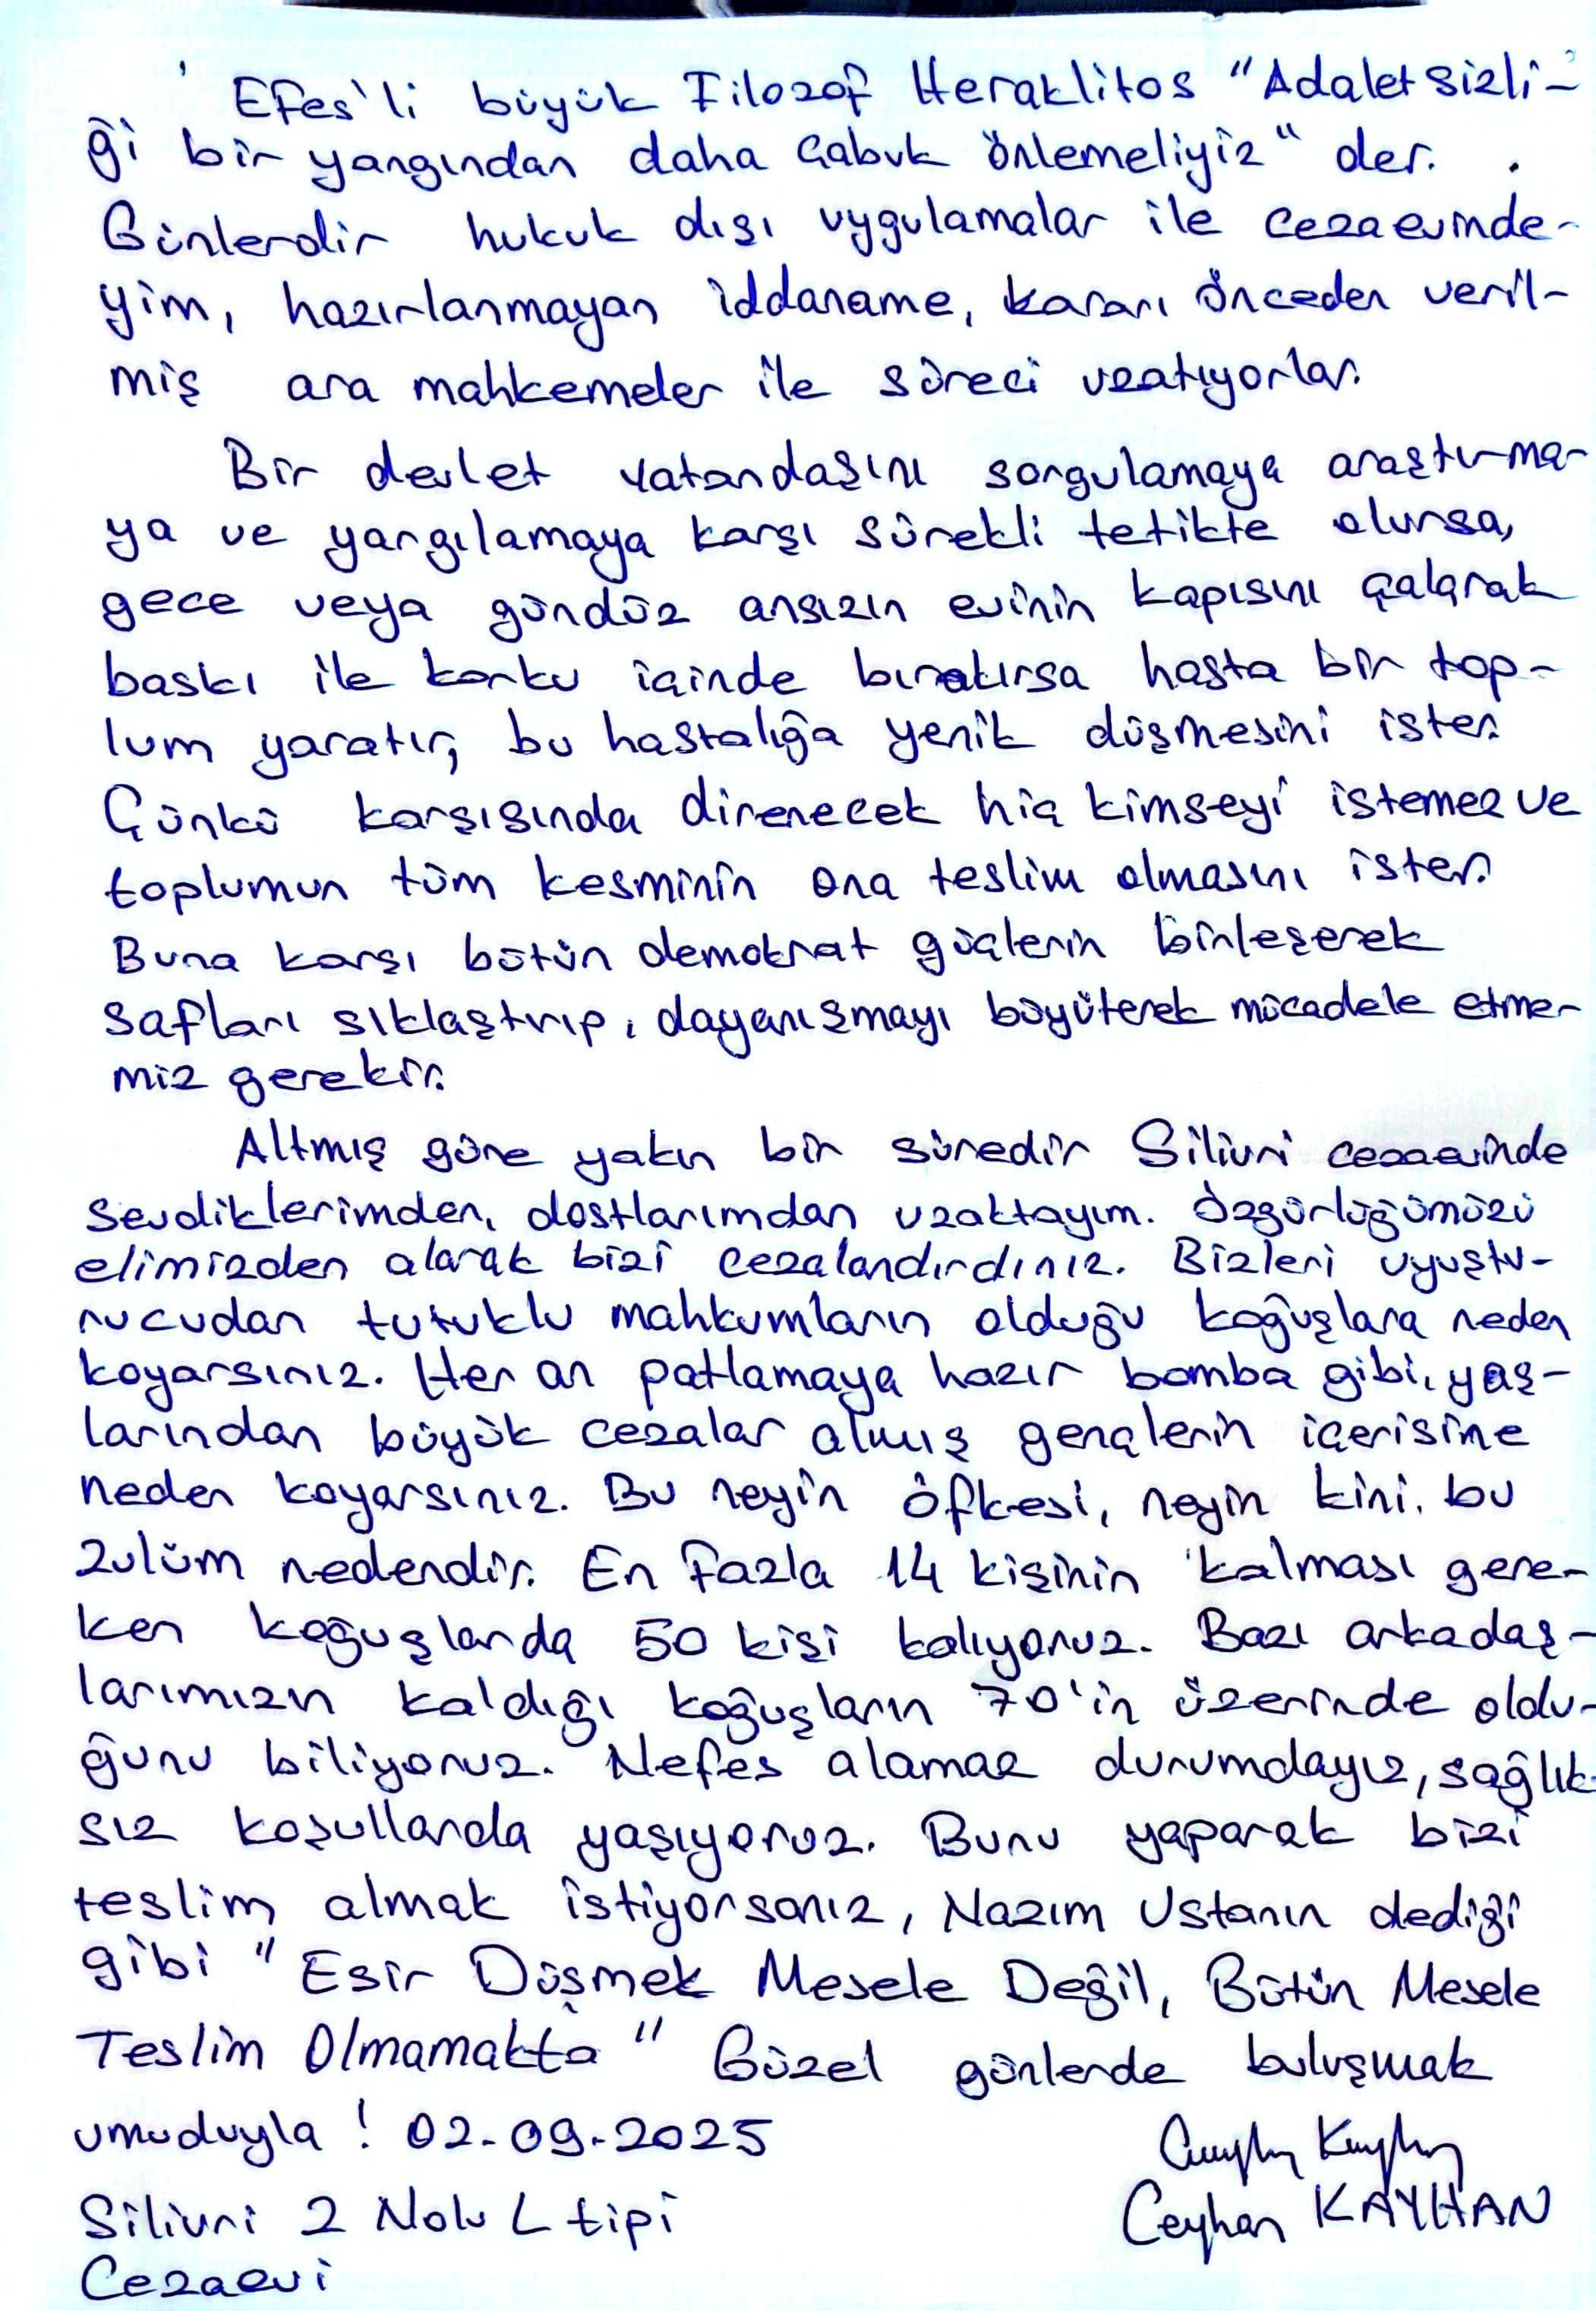 Efes'li büyük Filozof Heraklitos "Adaletsizli-
ği bir yangından daha çabuk önlemeliyiz" der.
Günlerdir hukuk dışı uygulamalar ile cezaevinde-
yim, hazırlanmayan iddaname, kararı önceden veril-
miş ara mahkemeler ile süreci uzatıyorlar.
Bir devlet vatandaşını sorgulamaya araştırma-
ya ve yargılamaya karşı sürekli tetikte olursa,
gece veya gündüz ansızın evinin kapısını çalarak
baskı ile korku içinde bırakırsa hasta bir top-
lum yaratır, bu hastalığa yenik düşmesini ister.
Çünkü karşısında direnecek hiç kimseyi istemez ve
toplumun tüm kesminin ona teslim olmasını ister.
Buna karşı bütün demokrat güçlerin birleşerek
safları sıklaştırıp, dayanışmayı büyüterek mücadele etme-
miz gerekir.
Altmış güne yakın bir süredir Silivri cezaevinde
sevdiklerimden, dostlarımdan uzaktayım. Özgürlüğümüzü
elimizden alarak bizi cezalandırdınız. Bizleri uyuştu-
rucudan tutuklu mahkumların olduğu koğuşlara neden
koyarsınız. Her an patlamaya hazır bomba gibi, yaş-
larından büyük cezalar almış gençlerin içerisine
neden koyarsınız. Bu neyin öfkesi, neyin kini, bu
zulüm nedendir. En fazla 14 kişinin kalması gere-
ken koğuşlarda 50 kişi kalıyoruz. Bazı arkadaş-
larımızın kaldığı koğuşların 70'in üzerinde oldu-
ğunu biliyoruz. Nefes alamaz durumdayız, sağlık-
sız koşullarda yaşıyoruz. Bunu yaparak bizi
teslim almak istiyorsanız, Nazım Ustanın dediği
gibi "Esir Düşmek Mesele Değil, Bütün Mesele
Teslim Olmamakta" Güzel günlerde buluşmak
umuduyla! 02-09-2025
Silivri 2 Nolu L tipi
Cezaevi
Ceyhan Kayhan
Ceyhan KAYHAN